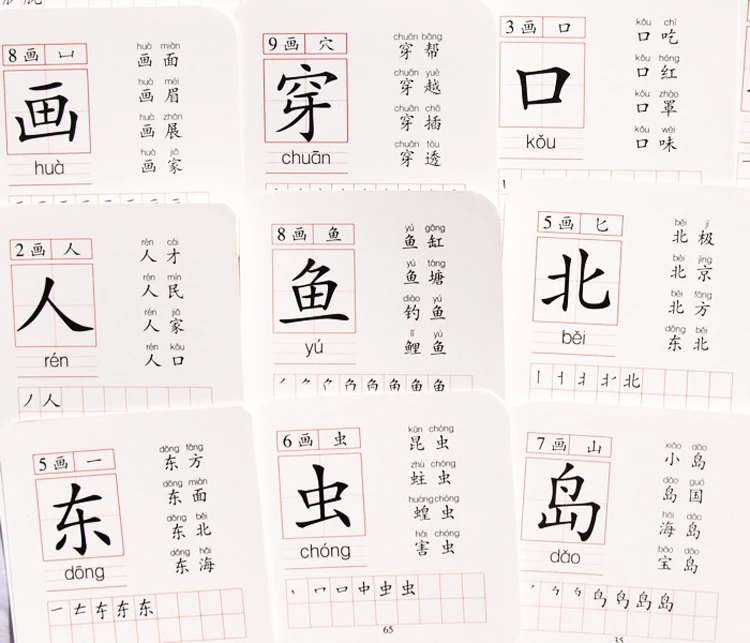 8画 凵
画
huà
huà miàn
画面
huà méi
画眉
huà zhǎn
画展
huà jiā
画家
9画 穴
穿
chuān
chuān bāng
穿帮
chuān yuè
穿越
chuān chā
穿插
chuān tòu
穿透
3画 口
口
kǒu
kǒu chī
口吃
kǒu hóng
口红
kǒu zhào
口罩
kǒu wèi
口味
2画 人
人
rén
rén cái
人才
rén mín
人民
rén jiā
人家
rén kǒu
人口
丿人
8画 鱼
鱼
yú
yú gāng
鱼缸
yú táng
鱼塘
diào yú
钓鱼
lǐ yú
鲤鱼
5画 匕
北
běi
běi jí
北极
běi jīng
北京
běi fāng
北方
dōng běi
东北
北
5画 一
东
dōng
dōng fāng
东方
dōng miàn
东面
dōng běi
东北
dōng hǎi
东海
一 东
6画 虫
虫
chóng
kūn chóng
昆虫
zhù chóng
蛀虫
huáng chóng
蝗虫
hài chóng
害虫
丶 口 口 中 虫 虫
65
7画 山
岛
dǎo
xiǎo dǎo
小岛
dǎo guó
岛国
hǎi dǎo
海岛
bǎo dǎo
宝岛
岛
35